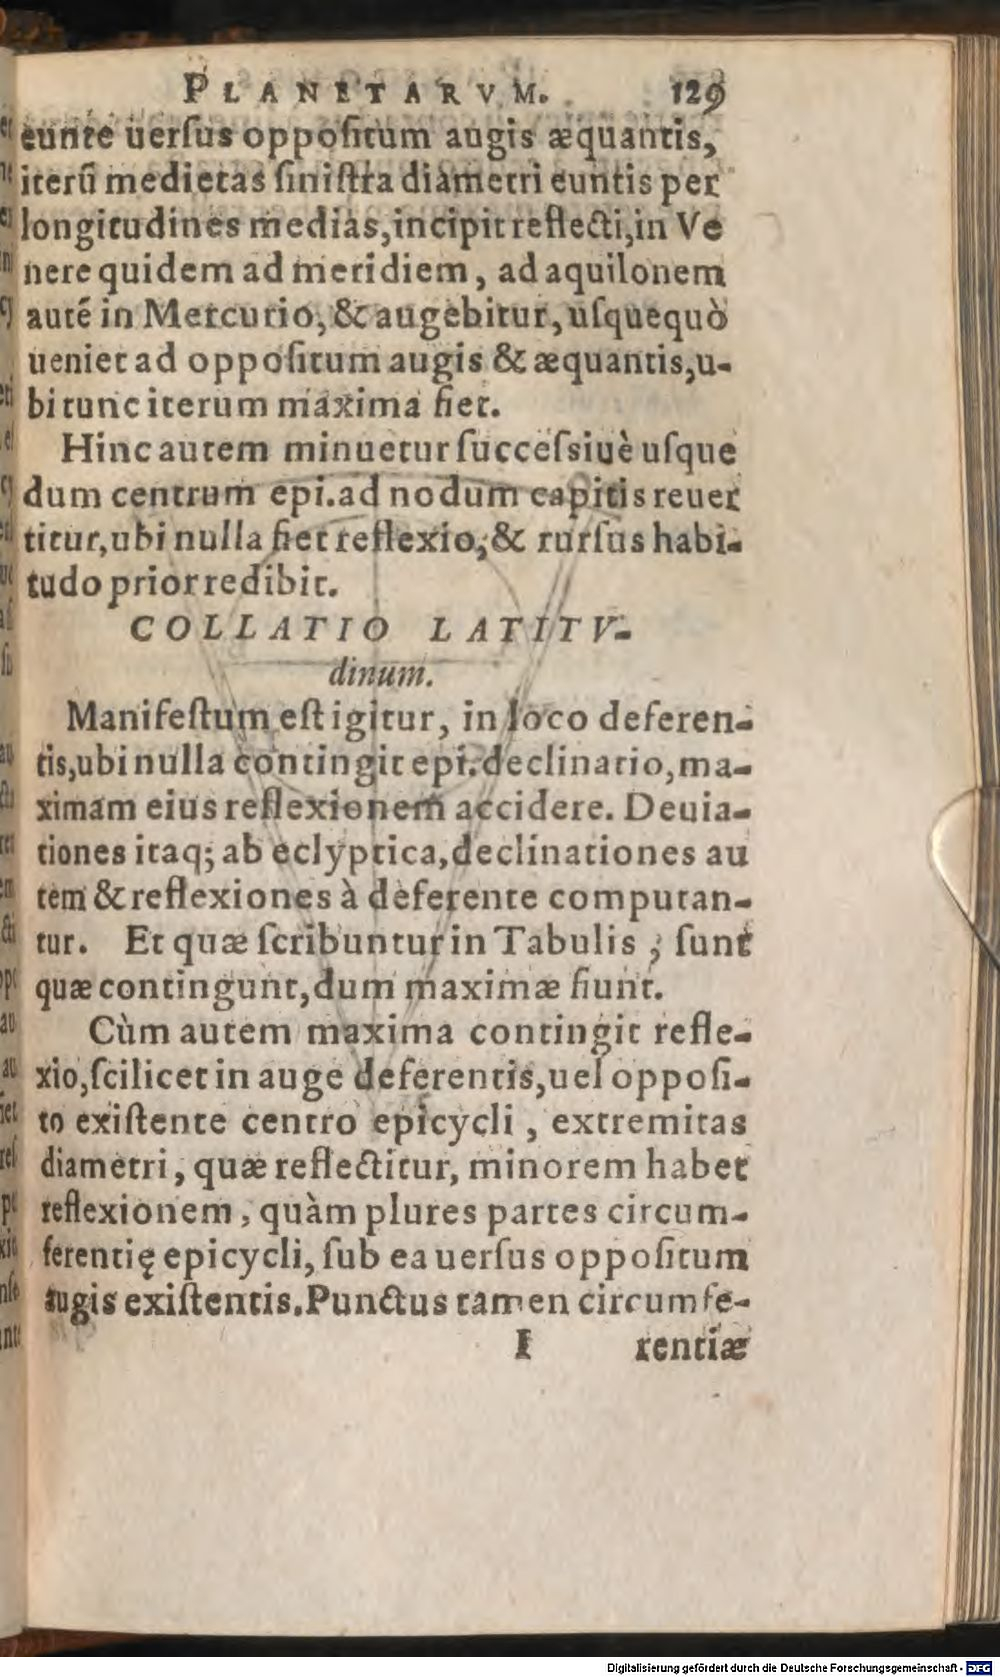 PLANETARVM. 129
eunte uerſus oppoſitum augis æquantis,
iterū medietas ſiniſtra diametri euntis per
longitudines medias, incipit reflecti, in Ve
nere quidem ad meridiem, ad aquilonem
autē in Mercurio, & augebitur, uſquequò
ueniet ad oppoſitum augis & æquantis, u-
bi tunc iterum maxima fiet.
Hinc autem minuetur ſucceſsiuè uſque
dum centrum epi. ad nodum capitis reuer
titur, ubi nulla fiet reflexio, & rurſus habi-
tudo prior redibit.
COLLATIO LATITV-
dinum.
Manifeſtum eſt igitur, in loco deferen-
tis, ubi nulla contingit epi. declinatio, ma-
ximam eius reflexionem accidere. Deuia-
tiones itaq; ab eclyptica, declinationes au
tem & reflexiones à deferente computan-
tur. Et quæ ſcribuntur in Tabulis, ſunt
quæ contingunt, dum maximæ fiunt.
Cùm autem maxima contingit refle-
xio, ſcilicet in auge deferentis, uel oppoſi-
to exiſtente centro epicycli, extremitas
diametri, quæ reflectitur, minorem habet
reflexionem, quàm plures partes circum-
ferentię epicycli, ſub ea uerſus oppoſitum
augis exiſtentis. Punctus tamen circumfe-
I rentiæ
Digitalisierung gefördert durch die Deutsche Forschungsgemeinschaft - DFG